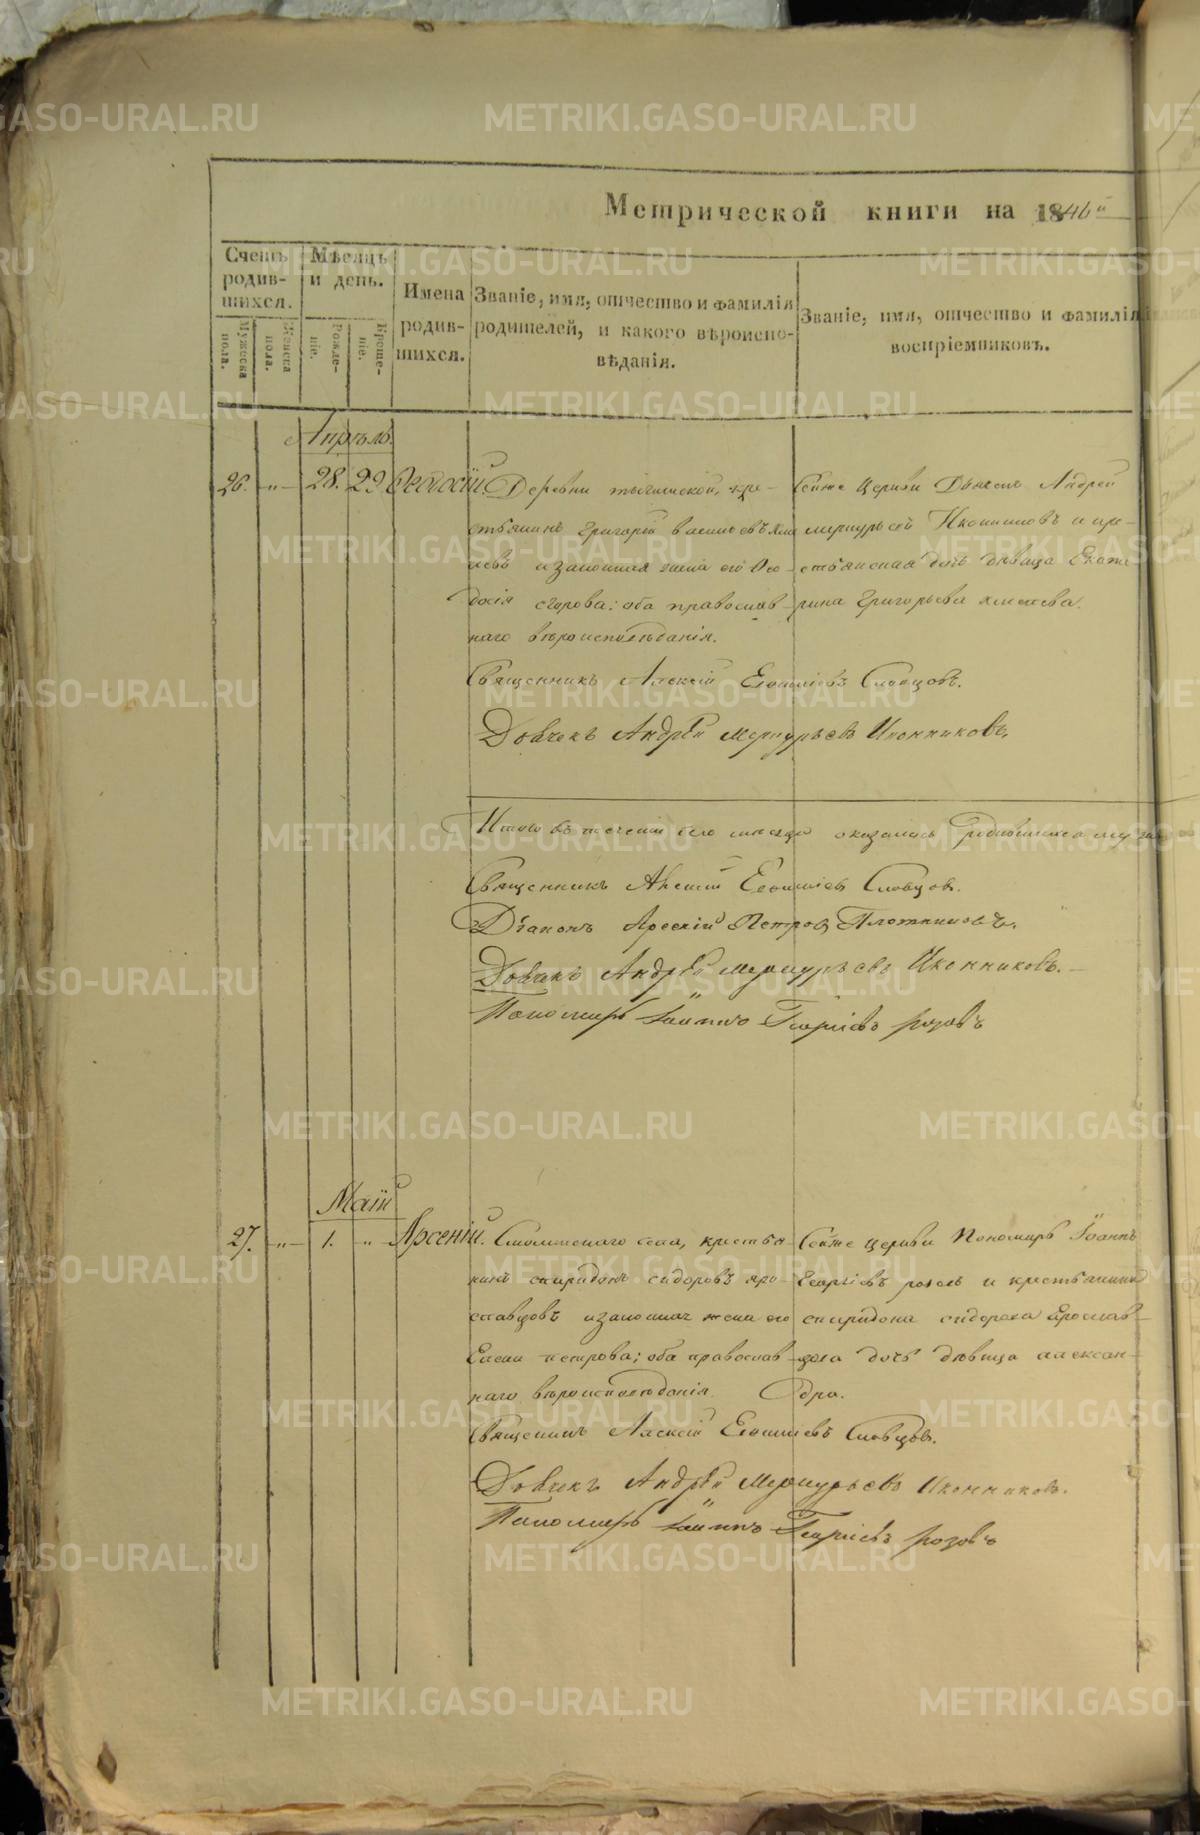 Метрической книги на 1846 й
Счетъ родив-шихся.
Мѣсяцъ и день.
Имена родив-шихся.
Званіе, имя, отчество и фамилія родителей, и какого вѣроиспо-вѣданія.
Званіе, имя, отчество и фамилія воспріемниковъ.
Мужеска пола.
Женска пола.
Рожде-ніе.
Креще-ніе.
Апрѣль.
26. „ 28. 29 Ѳеодосій.
Деревни кре-
стьянинъ Григорій Васильевъ
и законная жена его Ѳео-
досія Егорова; оба православ-
наго вѣроисповѣданія.
Сей же церкви Дьячекъ Андрей
Меркурьевъ Иконниковъ и кре-
стьянская дочь дѣвица Екате
рина Григорьева
Священникъ Алексій Словцовъ.
Дьячекъ Андрей Меркурьевъ Иконниковъ.
Итого въ теченіи сего мѣсяца оказалось родившихся
Священникъ Алексій Словцовъ.
Діаконъ Петровъ Плотниковъ.
Дьячекъ Андрей Меркурьевъ Иконниковъ.
Пономарь Іоаннъ Георгіевъ Розовъ
Маій
27. „ 1. „ Арсеній.
Смолинскаго села, крестья-
нинъ Спиридонъ Сидоровъ Яро-
славцовъ и законная жена его
Елена Петрова; оба православ-
наго вѣроисповѣданія.
Сей же церкви Пономарь Іоаннъ
Георгіевъ Розовъ и крестьянина
Спиридона Сидорова Ерослав-
цова дочь дѣвица Алексан-
дра.
Священникъ Алексій Словцовъ.
Дьячекъ Андрей Меркурьевъ Иконниковъ.
Пономарь Іоаннъ Георгіевъ Розовъ
METRIKI.GASO-URAL.RU